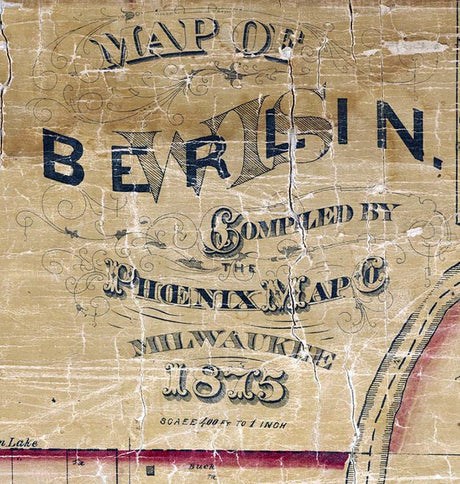 MAP OF
BERLIN,
WIS
COMPILED BY
THE
PHŒNIX MAP Co
MILWAUKEE
1875
SCALE 400 FT TO 1 INCH
n Lake
Buck